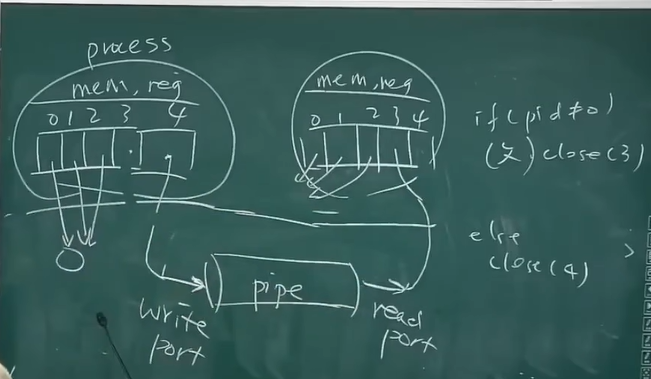 process
mem, reg
0 1 2 3 4
mem, reg
0 1 2 3 4
if (pid ≠ 0)
close(3)
else
close(4)
pipe
write
port
read
port